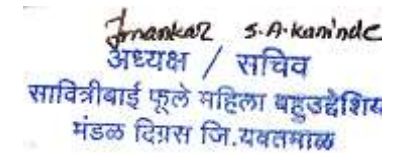 S.A.Kaminde
अध्यक्ष / सचिव
सावित्रीबाई फूले महिला बहुउद्देशिय
मंडळ दिग्रस जि.यवतमाळ